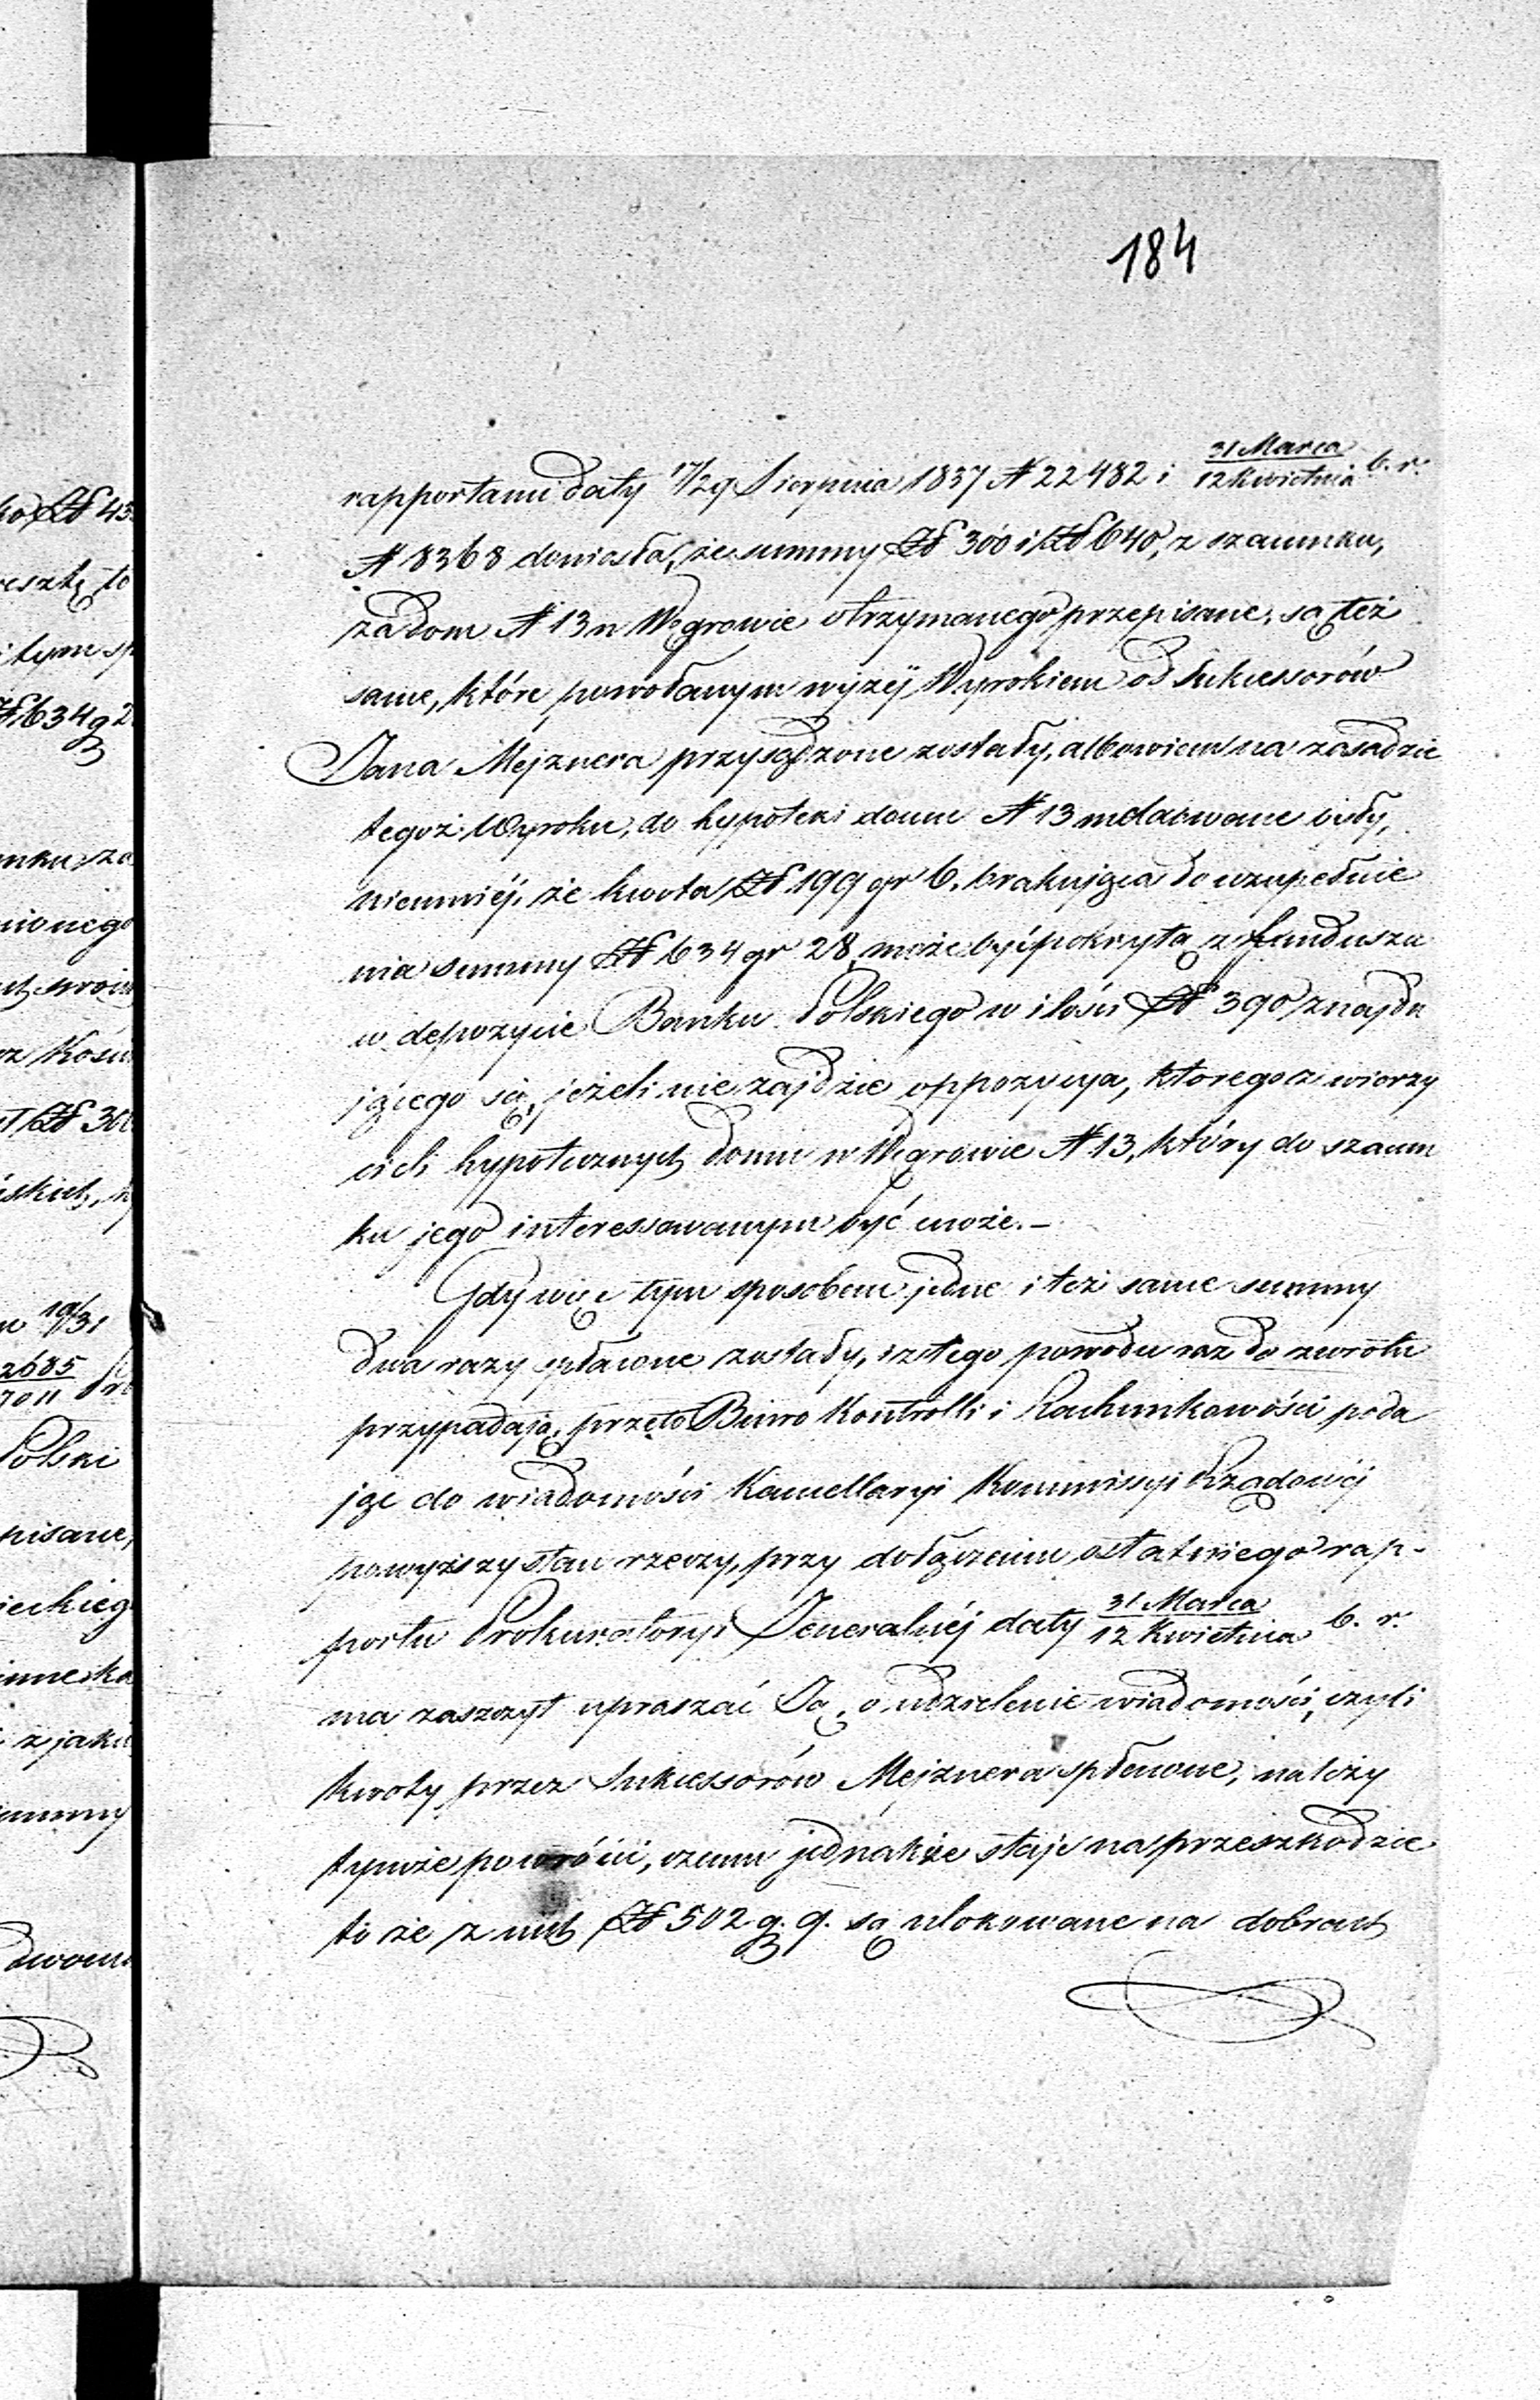 184
rapportami daty 17/29 Sierpnia 1837 N 22482 i 31 Marca / 12 Kwietnia b. r.
N 8368 doniosła, że summy Zł 300 i Zł 640, z szacunku,
za dom N 13 w Węgrowie otrzymanego przepisane, są też
same, które powołanym wyżéj Wyrokiem od Sukcessorów
Jana Mejznera przysądzone zostały, albowiem na zasadzie
tegoż Wyroku, do hypoteki domu N 13 meldowane były,
niemniéj, że kwota Zł 199 gr 6. brakująca do uzupełnie
nia summy Zł 634 gr 28, może być pokryta z funduszu
w depozycie Banku Polskiego w ilości Zł 390 znajdu
jącego się, jeżeli nie zajdzie oppozycya, którego z wierzy
cieli hypotecznych domu w Węgrowie N 13, który do szacun
ku jego interessowanym być może. –
Gdy więc tym sposobem jedne i też same summy
dwa razy spłacone zostały, i z tego powodu raz do zwrotu
przypadają, przeto Biuro Kontrolli i Rachunkowości poda
jąc do wiadomości Kancellaryi Kommissyi Rządowéj
powyższy stan rzeczy, przy dołączeniu ostatniego rap-
portu Prokuratoryi Jeneralnéj daty 31 Marca / 12 Kwietnia b. r.
ma zaszczyt upraszać Ją, o udzielenie wiadomości, czyli
kwoty przez Sukcessorów Mejznera spłacone, należy
tymże powrócić, czemu jednakże staje na przeszkodzie
to że z nich Zł 502 g. 9. są ulokowane na dobrach